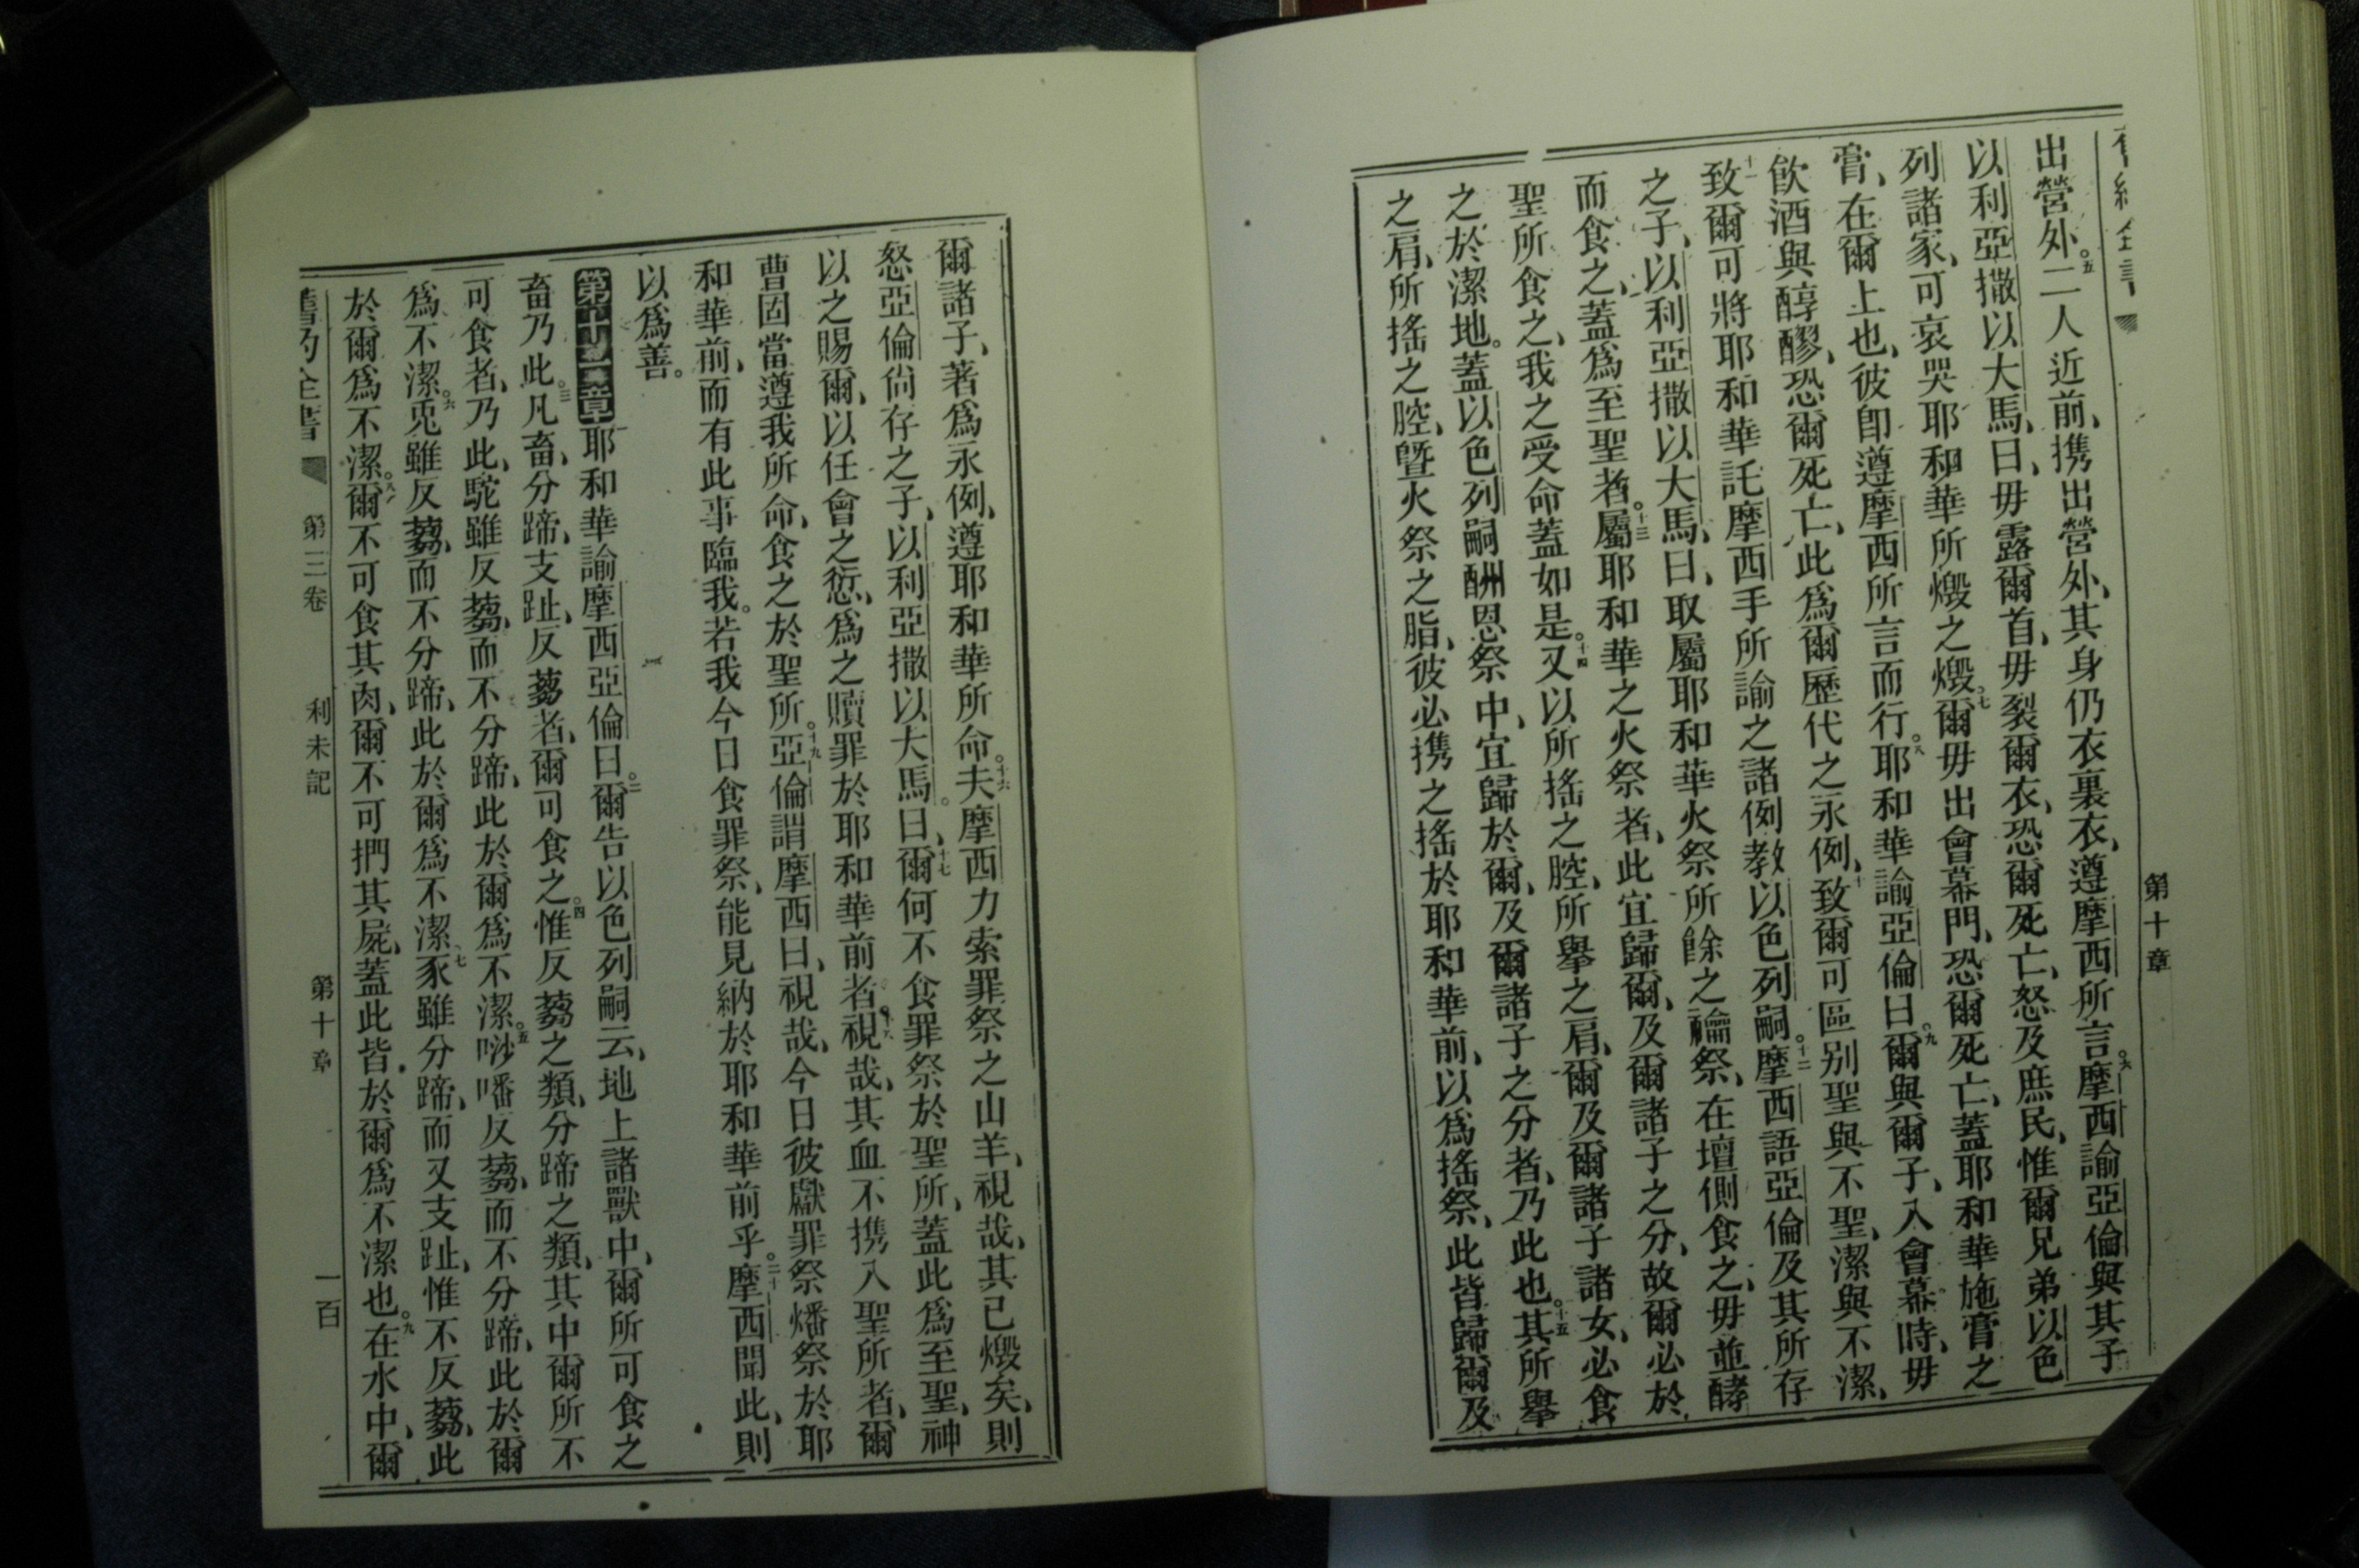 第十章
出營外。五二人近前、携出營外、其身仍衣裏衣、遵摩西所言。六摩西諭亞倫與其子
以利亞撒以大馬、曰、毋露爾首、毋裂爾衣、恐爾死亡、怒及庶民、惟爾兄弟以色
列諸家、可哀哭耶和華所燬之燬。七爾毋出會幕門、恐爾死亡、蓋耶和華施膏之
膏、在爾上也、彼卽遵摩西所言而行。八耶和華諭亞倫曰。九爾與爾子、入會幕時、毋
飮酒與醇醪、恐爾死亡、此爲爾歷代之永例、十致爾可區别聖與不聖、潔與不潔、
十一致爾可將耶和華託摩西手所諭之諸例教以色列嗣。十二摩西語亞倫及其所存
之子、以利亞撒以大馬、曰、取屬耶和華火祭所餘之禴祭、在壇側食之、毋並酵
而食之、蓋爲至聖者。十三屬耶和華之火祭者、此宜歸爾、及爾諸子之分、故爾必於
聖所食之、我之受命蓋如是。十四又以所搖之腔、所舉之肩、爾及爾諸子諸女、必食
之於潔地。蓋以色列嗣酬恩祭中、宜歸於爾、及爾諸子之分者、乃此也。十五其所舉
之肩、所搖之腔、曁火祭之脂、彼必携之搖於耶和華前、以爲搖祭、此皆歸爾及
爾諸子、著爲永例、遵耶和華所命。十六夫摩西力索罪祭之山羊、視哉、其已燬矣、則
怒亞倫尙存之子、以利亞撒以大馬。曰、十七爾何不食罪祭於聖所、蓋此爲至聖、神
以之賜爾、以任會之愆、爲之贖罪於耶和華前者、十八視哉、其血不携入聖所者、爾
曹固當遵我所命、食之於聖所。十九亞倫謂摩西曰、視哉、今日彼獻罪祭燔祭於耶
和華前、而有此事臨我。若我今日食罪祭、能見納於耶和華前乎。二十摩西聞此、則
以爲善。
第十一章耶和華諭摩西亞倫曰。二爾告以色列嗣云、地上諸獸中、爾所可食之
畜乃此。三凡畜、分蹄、支趾、反蒭者、爾可食之。四惟反蒭之類、分蹄之類、其中爾所不
可食者、乃此、駝雖反蒭、而不分蹄、此於爾爲不潔。五𠵇噃反蒭、而不分蹄、此於爾
爲不潔。六兎雖反蒭、而不分蹄、此於爾爲不潔、七豕雖分蹄、而又支趾、惟不反蒭、此
於爾爲不潔。八爾不可食其肉、爾不可捫其屍、蓋此皆於爾爲不潔也。九在水中、爾
舊約全書 第三卷 利未記 第十章 一百